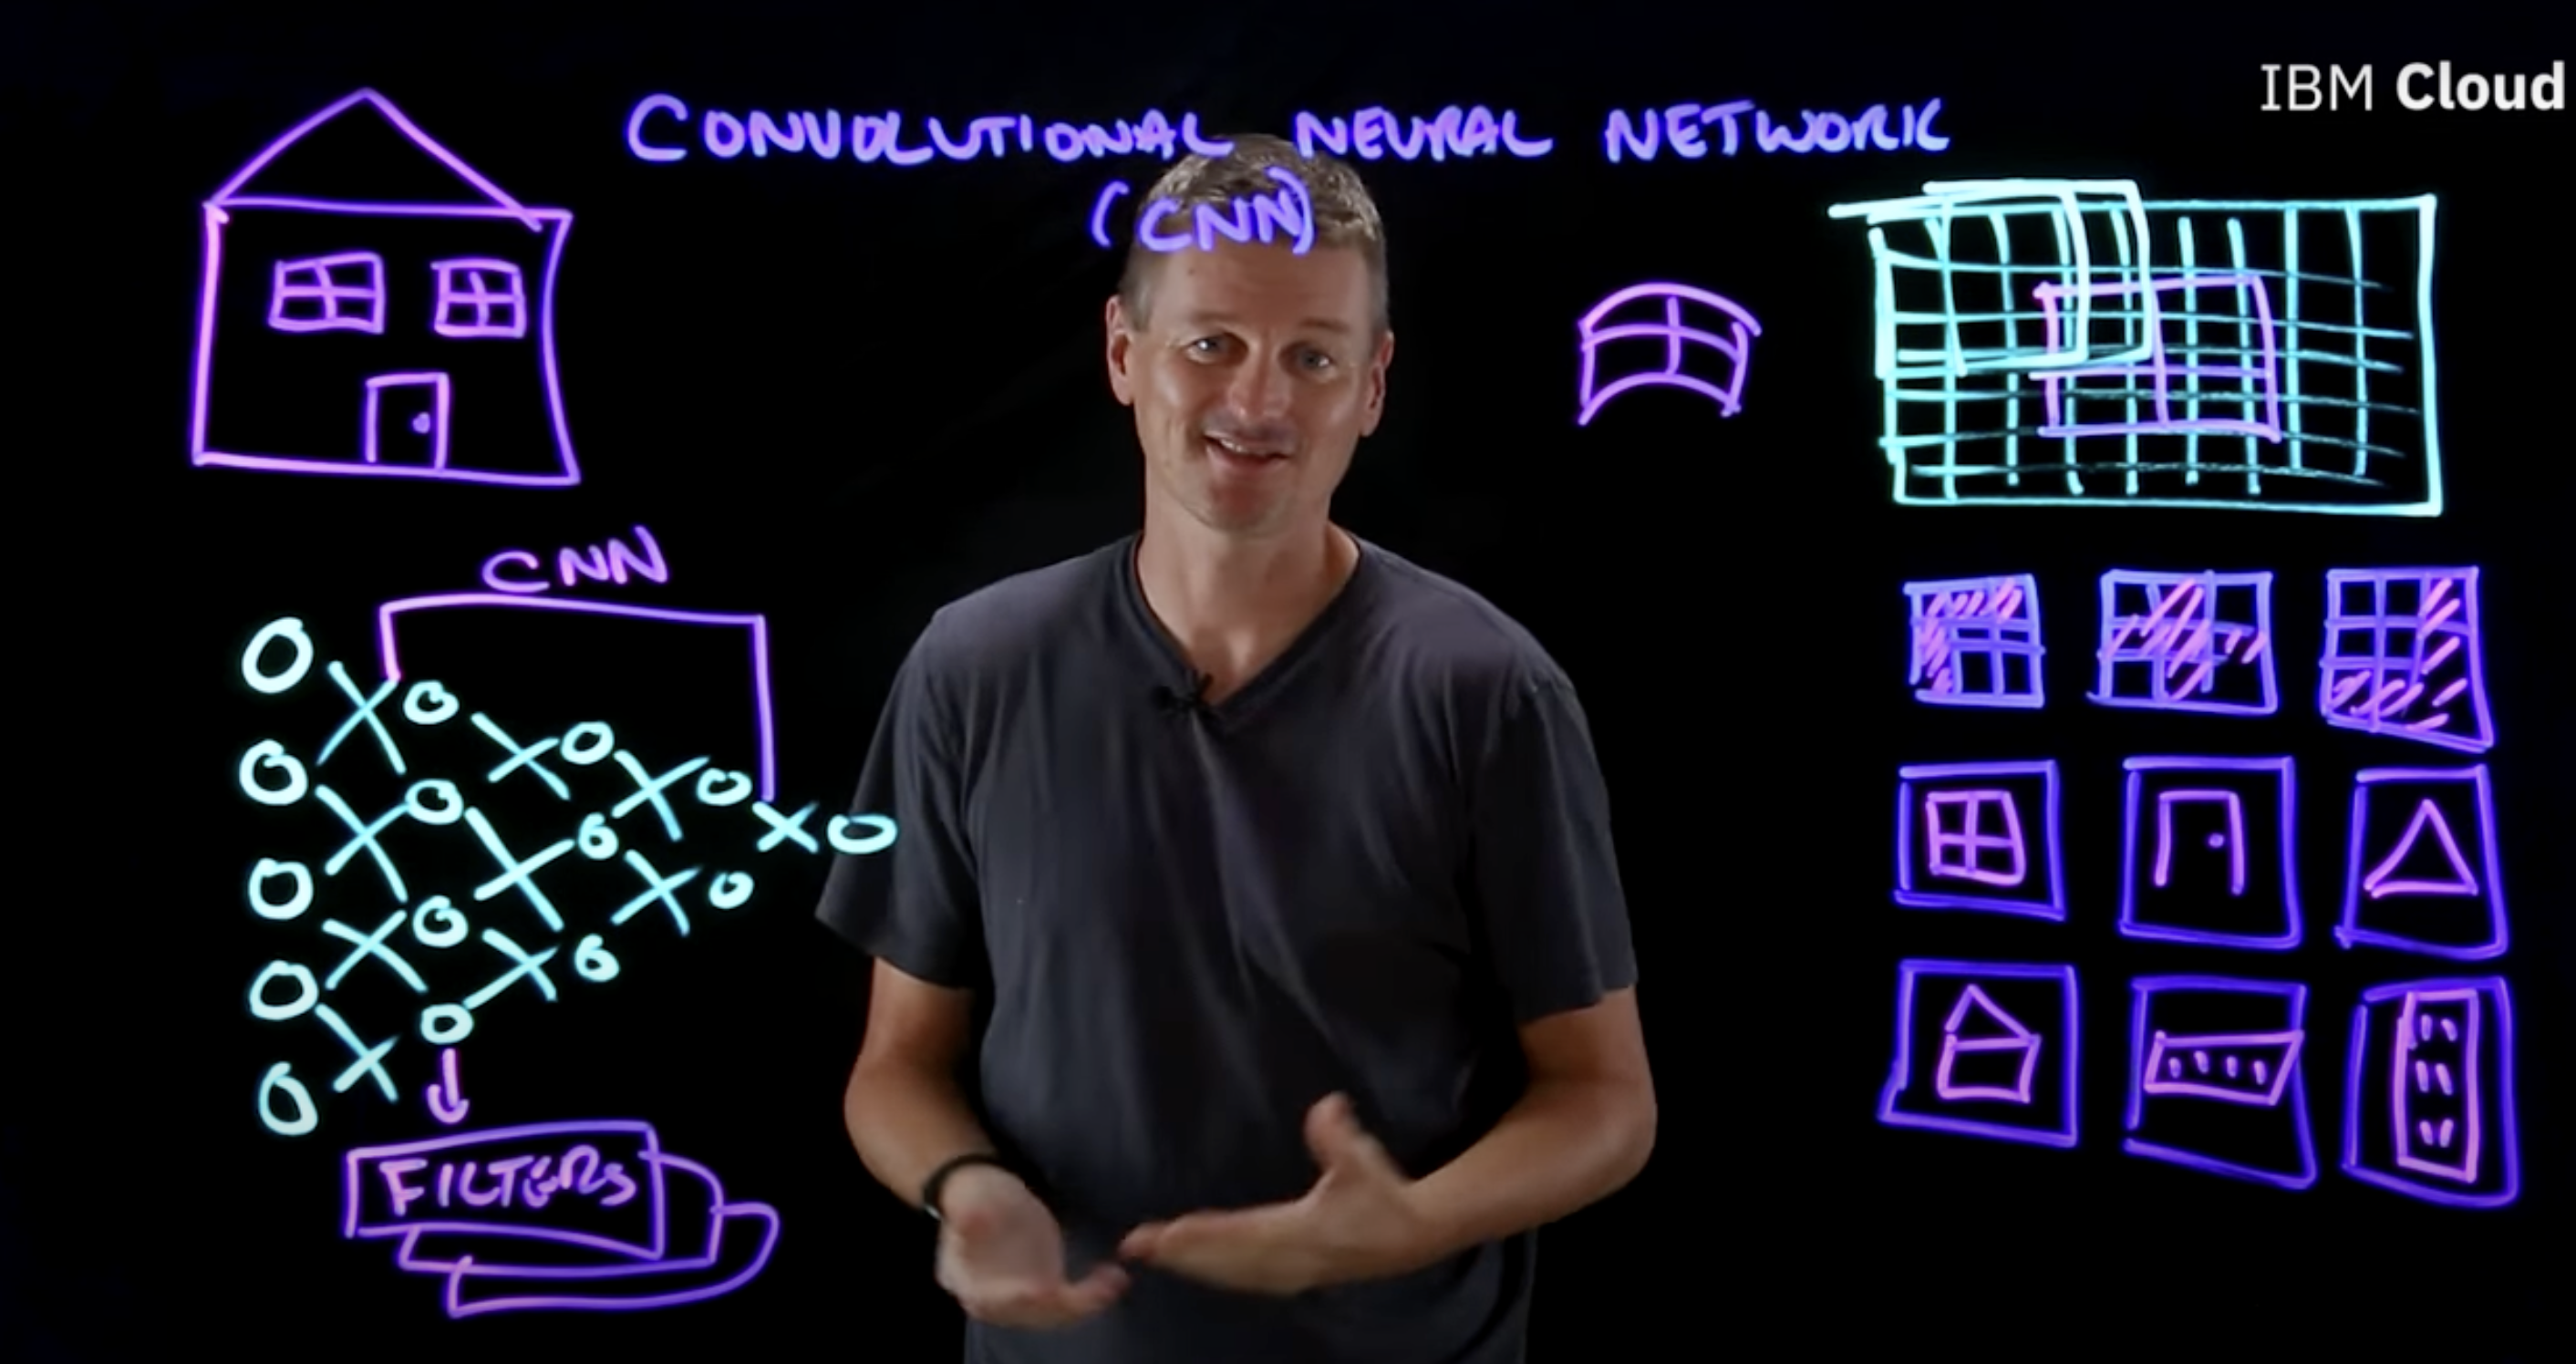 IBM Cloud
CONVOLUTIONAL NEURAL NETWORK
(CNN)
CNN
FILTERS